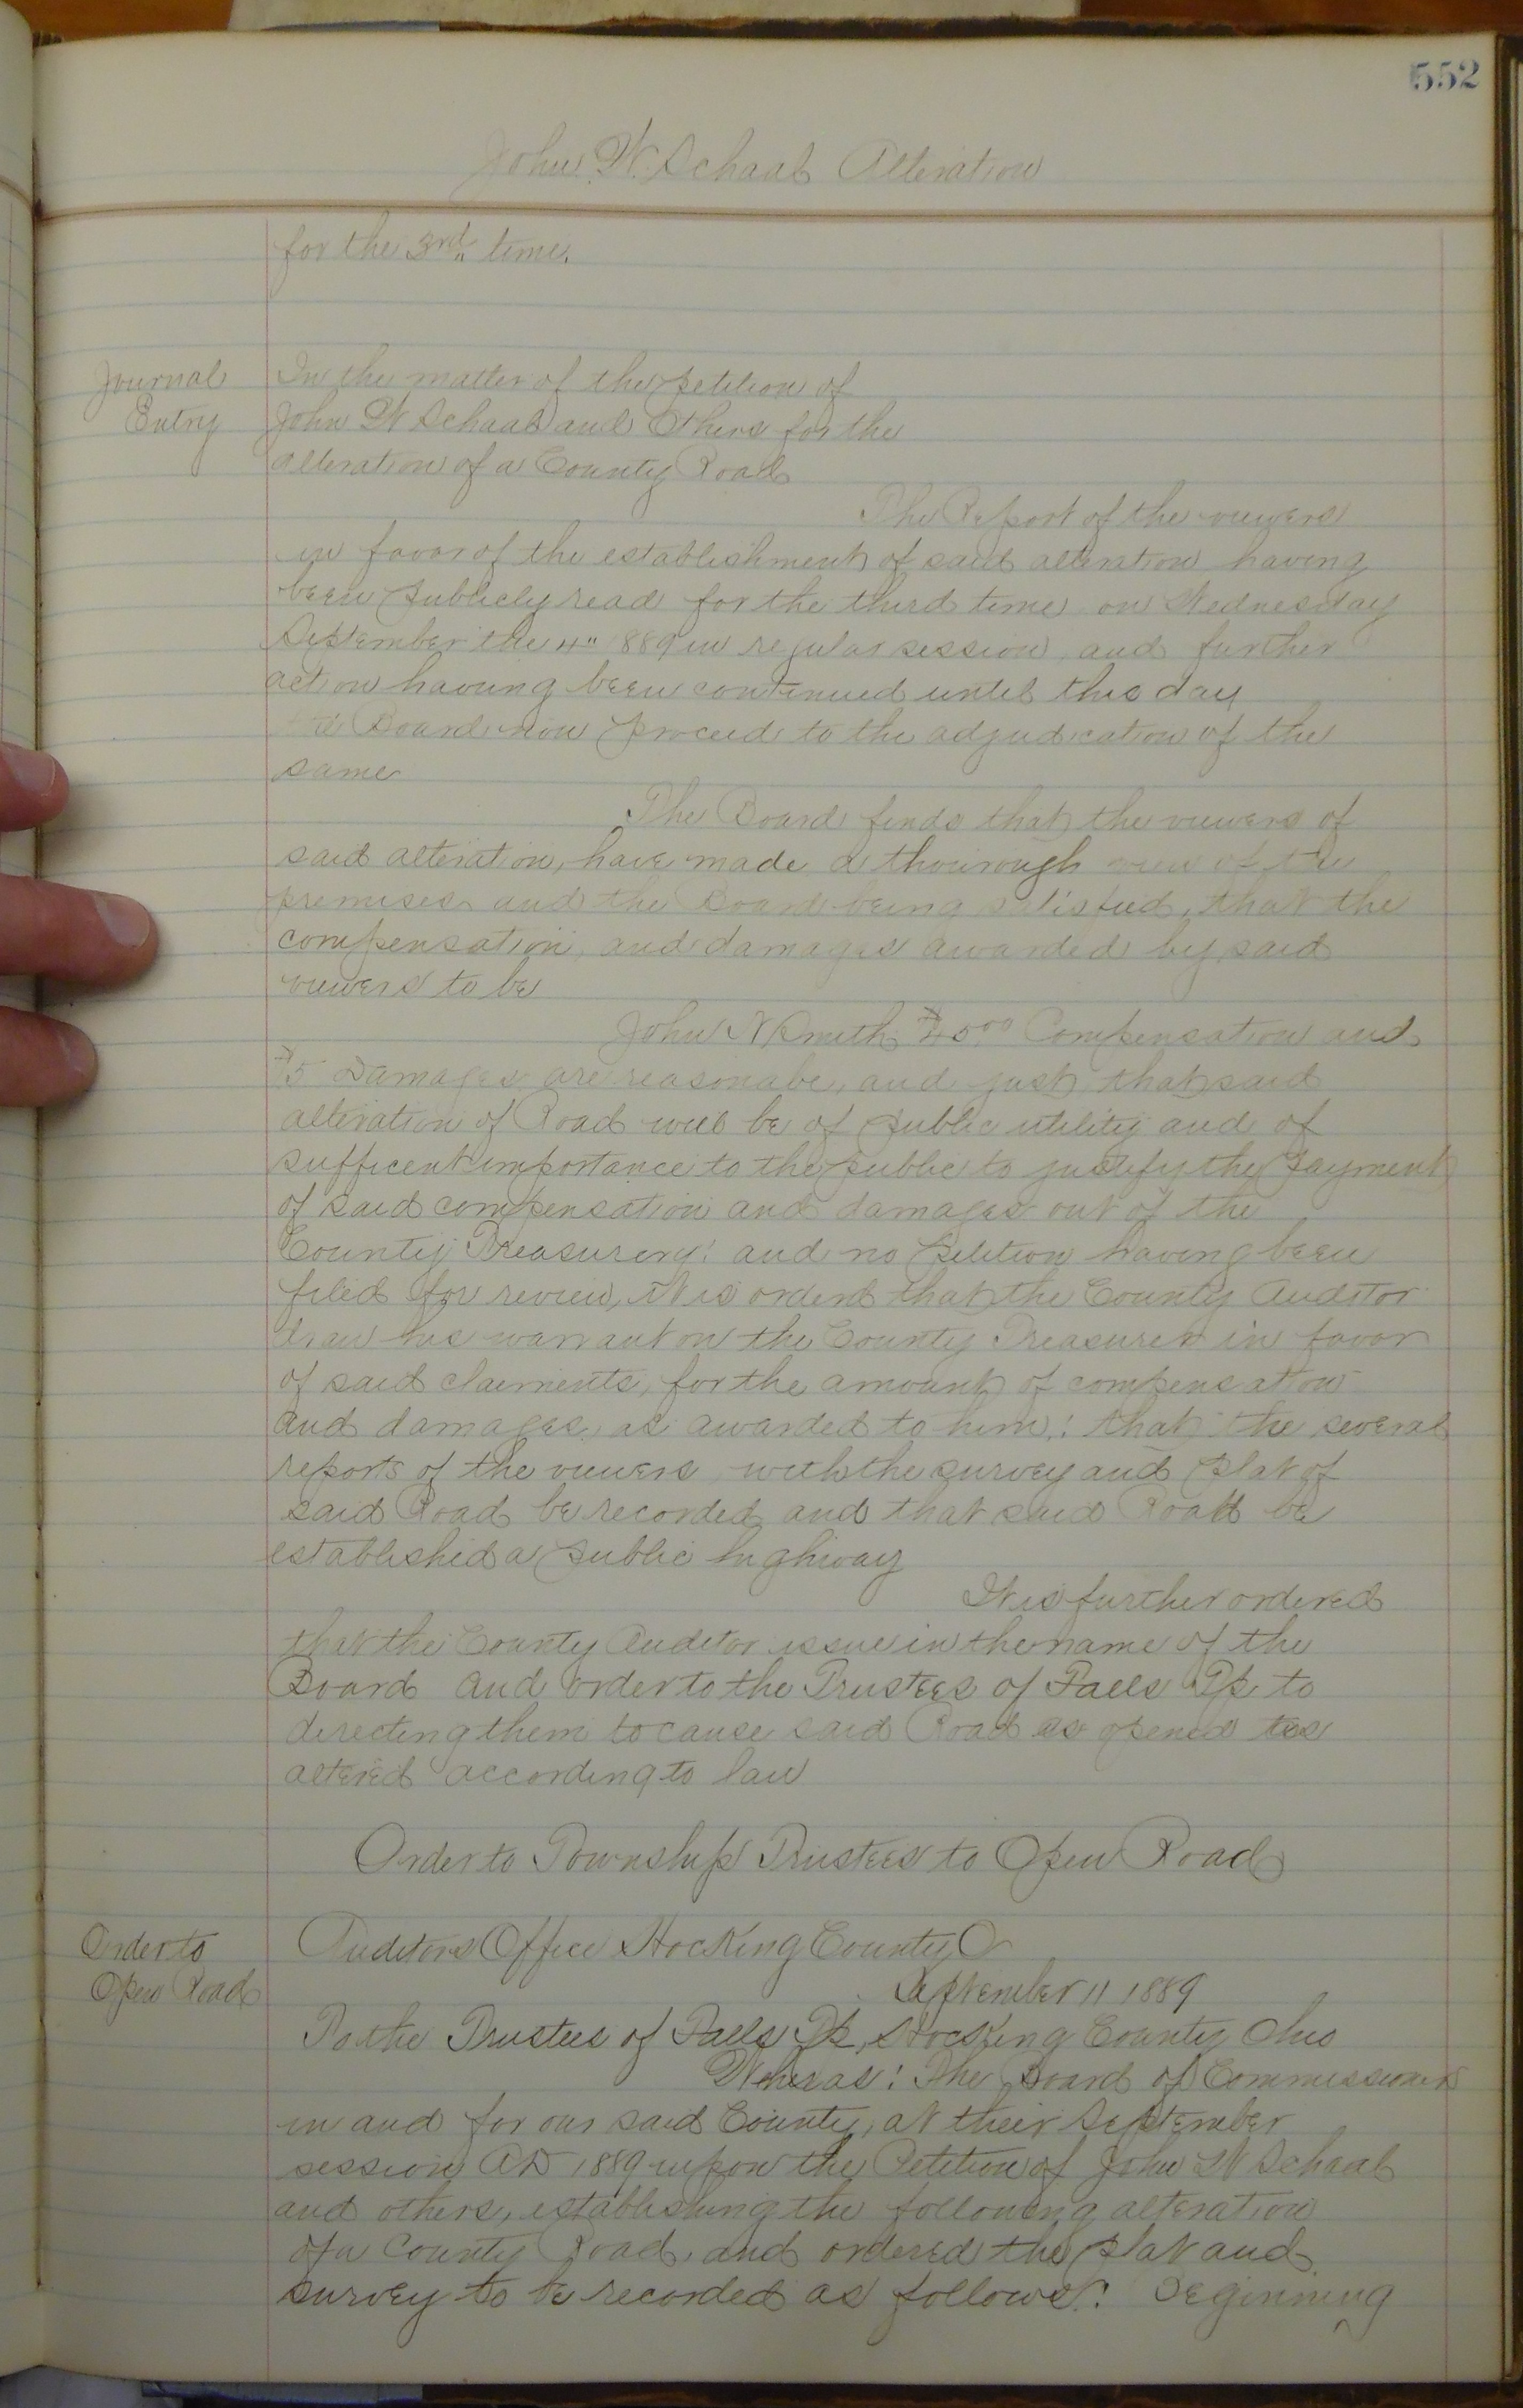 552
John W. Schaal Alteration
for the 3rd time.
Journal
Entry
In the matter of the petition of
John W Schaal and Others for the
alteration of a County Road
The Report of the viewers
in favor of the establishment of said alteration having
been publicly read for the third time on Wednesday
September the 4" 889 in regular session, and further
action having been continued until this day
the Board now proceed to the adjudication of the
same
The Board finds that the viewers of
said alteration, have made a thourough view of the
premises and the Board being satisfied, that the
compensation, and damages awarded by said
viewers to be
John N Smith $45.00 Compensation and
$5 Damages are reasonabe, and just, that said
alteration of Road will be of public utility and of
sufficent importance to the public to justify the payment
of said compensation and damages out of the
County Treasurery: and no petition having been
filed for review, it is orderd that the County Auditor
draw his warrant on the County Treasurer in favor
of said claiments, for the amount of compensation
and damages, as awarded to him: that the several
reports of the viewers with the survey and plat of
said Road be recorded and that said Road be
established a public highway
It is further ordered
that the County Auditor issue in the name of the
Board and order to the Trustees of Falls Tp. to
directing them to cause said Road as opened
altered according to law
Order to Township Trustees to Open Road
Order to
Open Road
Auditors Office Hocking County O
September 11 1889
To the Trustees of Falls Tp, Hocking County Ohio
Wheras: The Board of Commissioners
in and for our said County, at their September
session AD 1889 upon the Petition of John W Schaal
and others, establishing the following alteration
of a County Road, and ordered the plat and
survey to be recorded as follows: Beginning